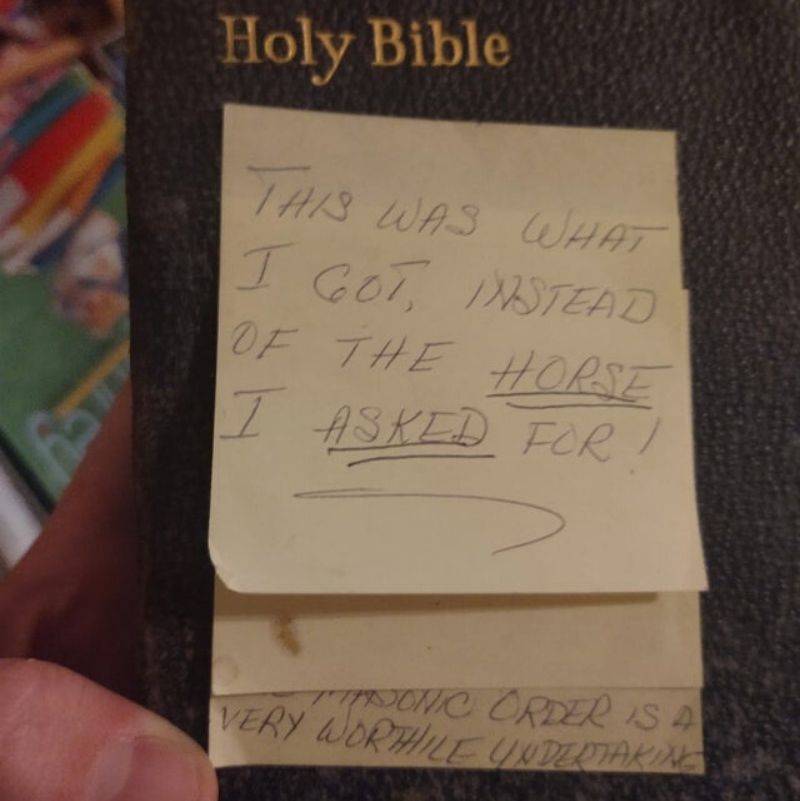 Holy Bible
THIS WAS WHAT
I GOT, INSTEAD
OF THE HORSE
I ASKED FOR!
MASONIC ORDER IS A
VERY WORTHILE UNDERTAKING